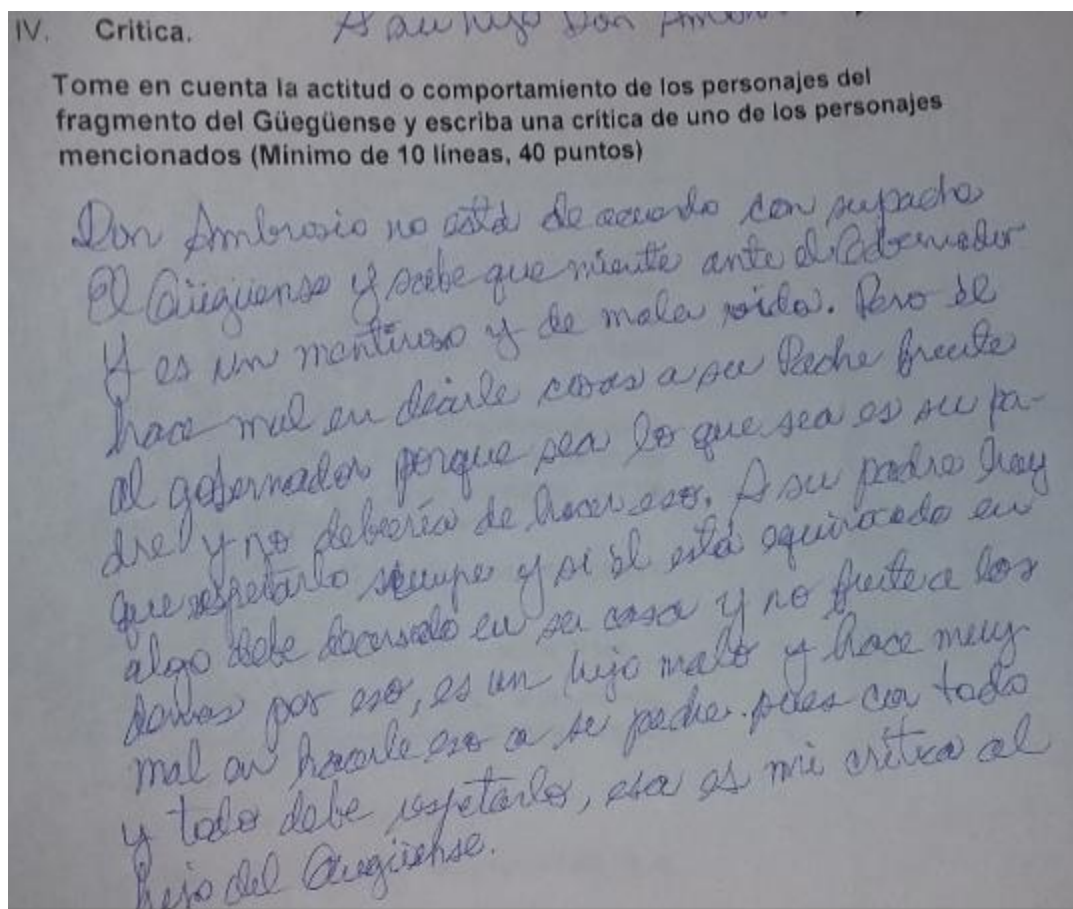 IV. Critica.
A su hijo Don Am
Tome en cuenta la actitud o comportamiento de los personajes del
fragmento del Güegüense y escriba una crítica de uno de los personajes
mencionados (Minimo de 10 líneas, 40 puntos)
Don Ambrosio no está de acuerdo con su padre
El Güegüense y sabe que miente ante el Gobernador
Y es un mentiroso y de mala vida. Pero él
hace mal en decirle cosas a su Padre frente
al gobernador porque sea lo que sea es su pa-
dre y no debería de hacer eso. A su padre hay
que respetarlo siempre y si él está equivocado en
algo debe decírselo en su casa y no frente a los
demás por eso, es un hijo malo y hace muy
mal en hacerle eso a su padre. pues con todo
y todo debe respetarlo, esa es mi crítica al
hijo del Güegüense.